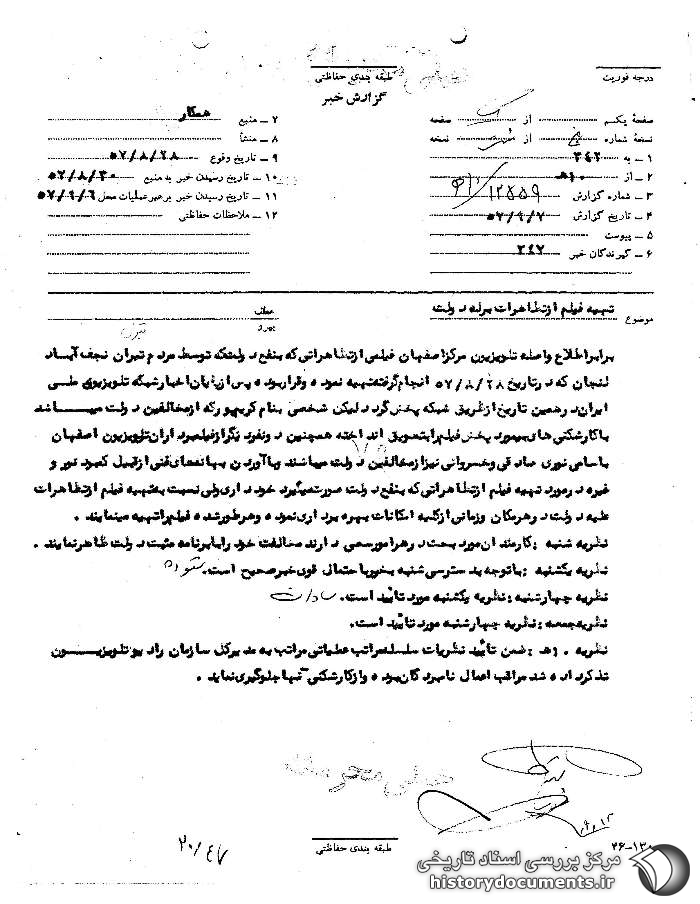 درجه فوریت
طبقه بندی حفاظتی
گزارش خبر
صفحهٔ یکم از صفحه
نسخهٔ شماره از نسخه
۱ ـ به ۳۴۲
۲ ـ از ۱۰ هـ
۳ ـ شماره گزارش ۱۲۵۵۹ / ۱۰ هـ
۴ ـ تاریخ گزارش ۵۷/۹/۷
۵ ـ پیوست
۶ ـ گیرندگان خبر ۳۴۷
۷ ـ منبع همکار
۸ ـ منشأ
۹ ـ تاریخ وقوع ۵۷/۸/۲۸
۱۰ ـ تاریخ رسیدن خبر به منبع ۵۷/۸/۳۰
۱۱ ـ تاریخ رسیدن خبر به رهبر عملیات محل ۵۷/۹/۶
۱۲ ـ ملاحظات حفاظتی
موضوع تهیه فیلم از تظاهرات برله دولت
عطف
پیرو
برابر اطلاع واصله تلویزیون مرکز اصفهان فیلمی از تظاهراتی که بنفع دولت که توسط مردم تیران نجف آباد
لنجان که در تاریخ ۵۷/۸/۲۸ انجام گرفته تهیه نموده و قرار بوده پس از پایان اخبار شبکه تلویزیونی ملی
ایران در همین تاریخ از طریق شبکه پخش گردد لیکن شخصی بنام کریم پور که از مخالفین دولت میباشد
با کارشکنی های بیمورد پخش فیلم را بتعویق انداخته همچنین دو نفر دیگر از فیلمبرداران تلویزیون اصفهان
باسامی نوری صادقی و خسروانی نیز از مخالفین دولت میباشند و با آوردن بهانه های فنی از قبیل کمبود نور و
غیره در مورد تهیه فیلم از تظاهراتی که بنفع دولت صورت میگیرد خودداری ولی نسبت به تهیه فیلم از تظاهرات
علیه دولت در هر مکان و زمانی از کلیه امکانات بهره برداری نموده و هر طور شده فیلم را تهیه مینمایند .
نظریه شنبه : کارمندان مورد بحث در هر امور سعی دارند مخالفت خود را با برنامه مثبت دولت ظاهر نمایند .
نظریه یکشنبه : با توجه بدسترسی شنبه بخبر با احتمال قوی خبر صحیح است. ستوده
نظریه چهارشنبه : نظریه یکشنبه مورد تأیید است. سادات
نظریه جمعه : نظریه چهارشنبه مورد تأیید است.
نظریه ۱۰ هـ : ضمن تأیید نظریات سلسله مراتب عملیاتی مراتب به مدیر کل سازمان رادیو تلویزیون
تذکر داده شد مراقب اعمال نامبردگان بوده و از کارشکنی آنها جلوگیری نماید .
خیلی محرمانه
طبقه بندی حفاظتی
۲۰/۴۷
مرکز بررسی اسناد تاریخی
historydocuments.ir